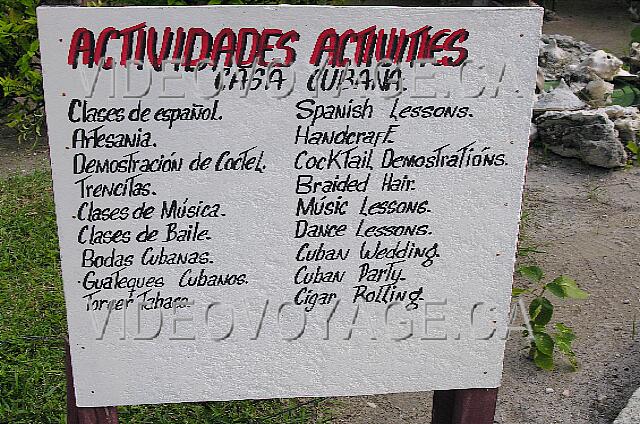 ACTIVIDADES ACTIVITIES
CASA CUBANA.
Clases de español. Spanish Lessons.
Artesania. Handcraft.
Demostración de Coctel. Cocktail Demostrations.
Trencitas. Braided Hair.
Clases de Música. Music Lessons.
Clases de Baile. Dance Lessons.
Bodas Cubanas. Cuban Wedding.
Guateques Cubanos. Cuban Party.
Torcer Tabaco. Cigar Rolling.
VIDEOVOYAGE.CA
VIDEOVOYAGE.CA